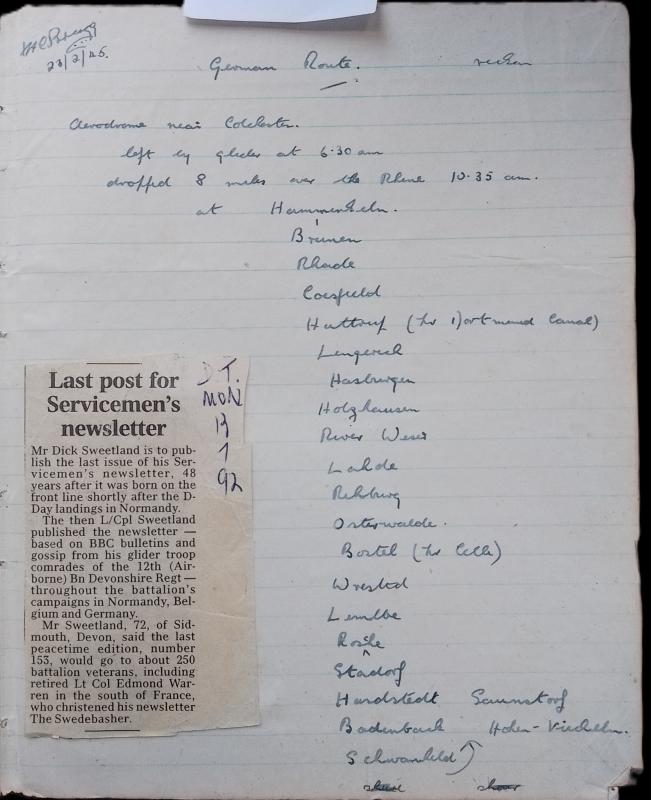 23/2/45.
German Route.
Aerodrome near Colchester.
left by glider at 6.30 am
dropped 8 miles over the Rhine 10.35 am.
at Hamminkeln.
Brunen
Rhade
Coesfield
(hr Dortmund Canal)
Lengerich
Hasburgen
Holzhausen
River Weser
Lahde
Rehburg
Osterwalde.
Bostel (hr Celle)
Wrested
Lemdbe
Rosche
Stadorf
Hardstedt
Badenback Hohen-Viecheln.
Schwanheld
Last post for
Servicemen's
newsletter
Mr Dick Sweetland is to pub-
lish the last issue of his Ser-
vicemen's newsletter, 48
years after it was born on the
front line shortly after the D-
Day landings in Normandy.
The then L/Cpl Sweetland
published the newsletter —
based on BBC bulletins and
gossip from his glider troop
comrades of the 12th (Air-
borne) Bn Devonshire Regt —
throughout the battalion's
campaigns in Normandy, Bel-
gium and Germany.
Mr Sweetland, 72, of Sid-
mouth, Devon, said the last
peacetime edition, number
153, would go to about 250
battalion veterans, including
retired Lt Col Edmund War-
ren in the south of France,
who christened his newsletter
The Swedebasher.
D.T.
MON
13
1
92